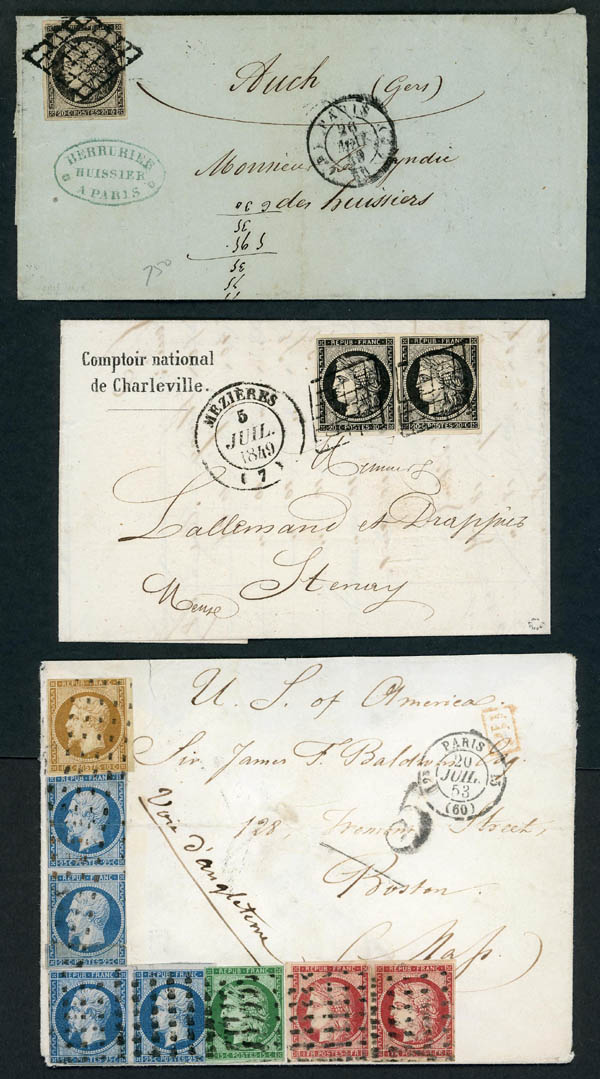 Auch (Gers)
PARIS
26
49
20·C·POSTES·20·C
HERRURIER
HUISSIER
A PARIS
Monsieur
des huissiers
30
35
5 95
35
75
750
REPUB·FRANC
REPUB·FRANC
20·C·POSTES·20·C
20·C·POSTES·20·C
Comptoir national
de Charleville.
MEZIÈRES
5
JUIL.
1849
(7)
Lallemand et Drappier
Stenay
Meuse
REPUB·FRANC
U. S. of America
PARIS
20
JUIL.
53
(60)
Sir James F. Baldwin
128, Tremont Street,
Boston.
Mass
Voie d'angleterre
REPUB·FRANC
25·C·POSTES·25·C
REPUB·FRANC
25·C·POSTES·25·C
REPUB·FRANC
REPUB·FRANC
REPUB·FRANC
REPUB·FRANC
REPUB·FRANC
25·C·POSTES·25·C
25·C·POSTES·25·C
15·C·POSTES·15·C
1·FR·POSTES·1·FR
1·FR·POSTES·1·FR